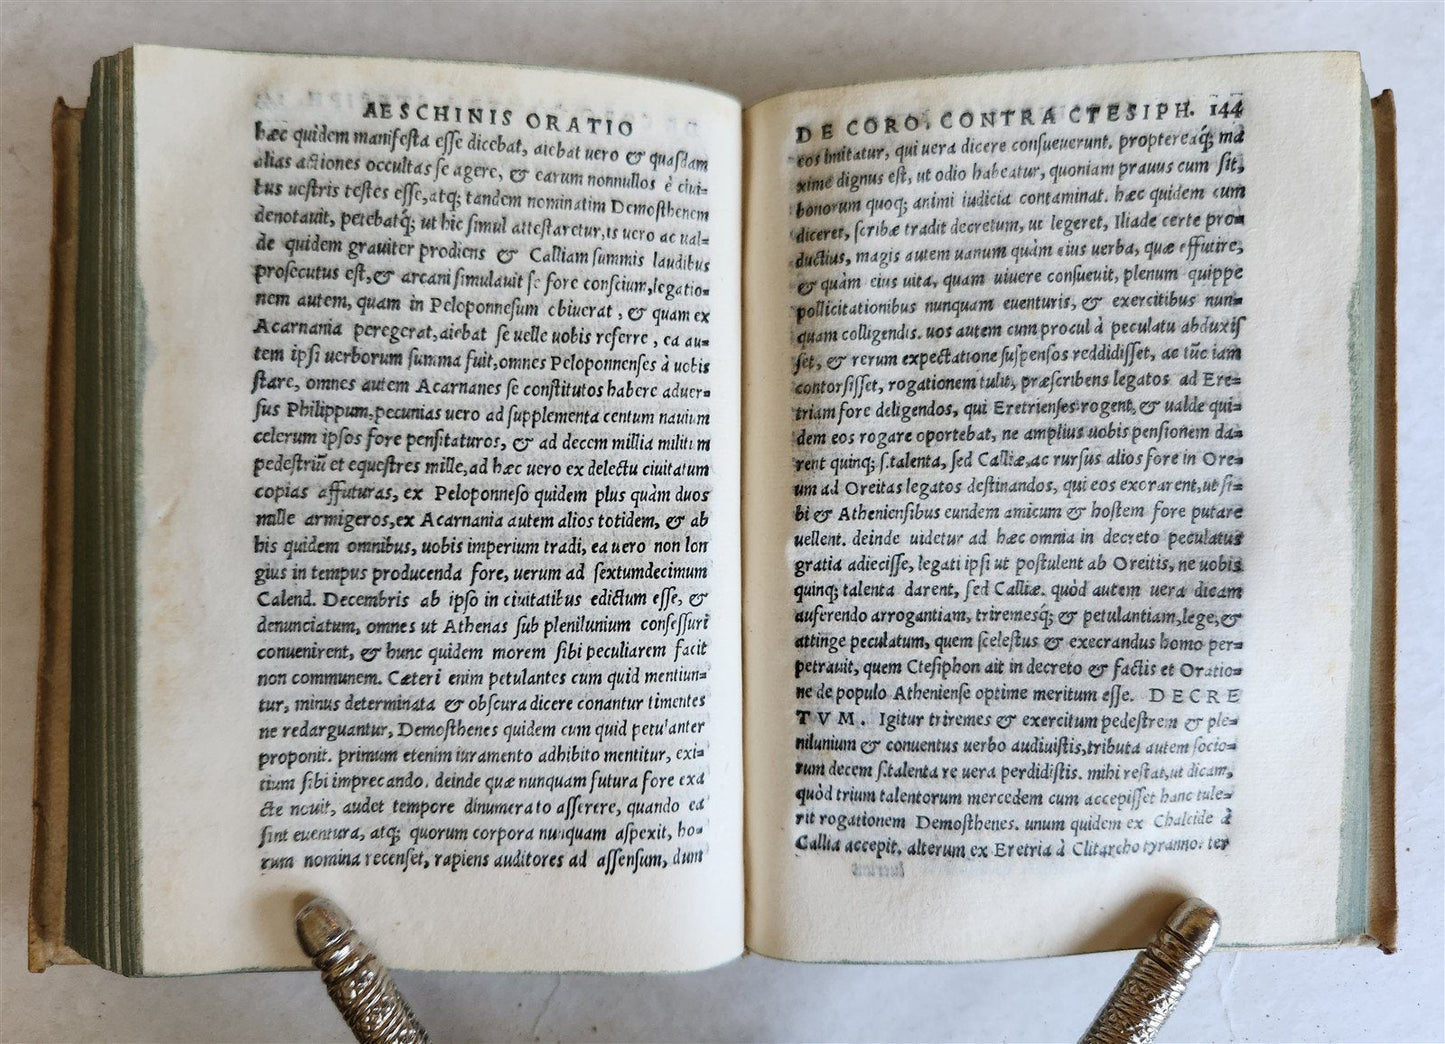 AESCHINIS ORATIO
hæc quidem manifesta esse dicebat, aiebat uero & quasdam
alias actiones occultas se agere, & earum nonnullos è ciui=
bus uestris testes esse, atq; tandem nominatim Demosthenem
denotauit, petebatq́; ut hic simul attestaretur, is uero ac ual=
de quidem grauiter prodiens & Calliam summis laudibus
prosecutus est, & arcani simulauit se fore conscium, legatio=
nem autem, quam in Peloponnesum obiuerat, & quam ex
Acarnania peregerat, aiebat se uelle uobis referre, ea au=
tem ipsi uerborum summa fuit, omnes Peloponnenses à uobis
stare, omnes autem Acarnanes se constitutos habere aduer=
sus Philippum, pecunias uero ad supplementa centum nauium
celerum ipsos fore pensitaturos, & ad decem millia militum
pedestriũ et equestres mille, ad hæc uero ex delectu ciuitatum
copias affuturas, ex Peloponneso quidem plus quàm duos
mille armigeros, ex Acarnania autem alios totidem, & ab
his quidem omnibus, uobis imperium tradi, ea uero non lon
gius in tempus producenda fore, uerum ad sextumdecimum
Calend. Decembris ab ipso in ciuitatibus edictum esse, &
denunciatum, omnes ut Athenas sub plenilunium consessuri
conuenirent, & hunc quidem morem sibi peculiarem facit
non communem. Cæteri enim petulantes cum quid mentiun=
tur, minus determinata & obscura dicere conantur timentes
ne redarguantur, Demosthenes quidem cum quid petulanter
proponit. primum etenim iuramento adhibito mentitur, exi=
tium sibi imprecando. deinde quæ nunquam futura fore exa
cte nouit, audet tempore dinumerato asserere, quando ea
sint euentura, atq; quorum corpora nunquam aspexit, ho=
rum nomina recenset, rapiens auditores ad assensum, dum
DE CORO. CONTRA CTESIPH. 144
eos imitatur, qui uera dicere consueuerunt. proptereaq́; ma
xime dignus est, ut odio habeatur, quoniam prauus cum sit,
bonorum quoq; animi iudicia contaminat. hæc quidem cum
diceret, scribæ tradit decretum, ut legeret, Iliade certe pro=
ductius, magis autem uanum quàm eius uerba, quæ effutire,
& quàm eius uita, quam uiuere consueuit, plenum quippe
pollicitationibus nunquam euenturis, & exercitibus nun=
quam colligendis. uos autem cum procul à peculatu abduxis
set, & rerum expectatione suspensos reddidisset, ac tũc iam
contorsisset, rogationem tulit, præscribens legatos ad Ere=
triam fore deligendos, qui Eretrienses rogent, & ualde qui=
dem eos rogare oportebat, ne amplius uobis pensionem da=
rent quinq; s. talenta, sed Calliæ, ac rursus alios fore in Ore=
um ad Oreitas legatos destinandos, qui eos exorarent, ut si=
bi & Atheniensibus eundem amicum & hostem fore putare
uellent. deinde uidetur ad hæc omnia in decreto peculatus
gratia adiecisse, legati ipsi ut postulent ab Oreitis, ne uobis
quinq; talenta darent, sed Calliæ. quòd autem uera dicam
auferendo arrogantiam, triremesq́; & petulantiam, lege, &
attinge peculatum, quem scelestus & execrandus homo per=
petrauit, quem Ctesiphon ait in decreto & factis et Oratio=
ne de populo Atheniense optime meritum esse. DECRE
TVM. Igitur triremes & exercitum pedestrem & ple=
nilunium & conuentus uerbo audiuistis, tributa autem socio=
rum decem s. talenta re uera perdidistis. mihi restat, ut dicam,
quòd trium talentorum mercedem cum accepisset hanc tule=
rit rogationem Demosthenes. unum quidem ex Chalcide à
Callia accepit, alterum ex Eretria à Clitarcho tyranno: ter